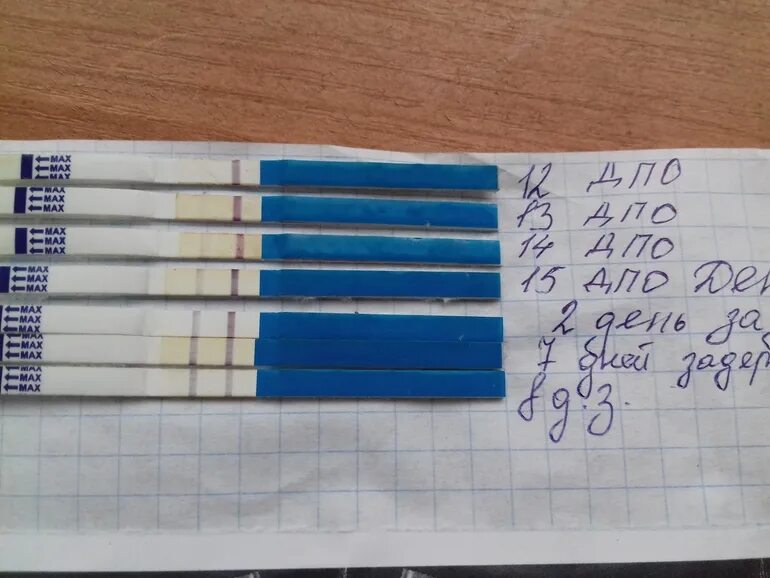 MAX
MAX
MAX
12 ДПО
MAX
MAX
MAX
13 ДПО
MAX
MAX
MAX
14 ДПО
MAX
MAX
MAX
15 ДПО Ден
MAX
MAX
2 день зад
MAX
MAX
MAX
7 дней задер
MAX
MAX
8 д.з.